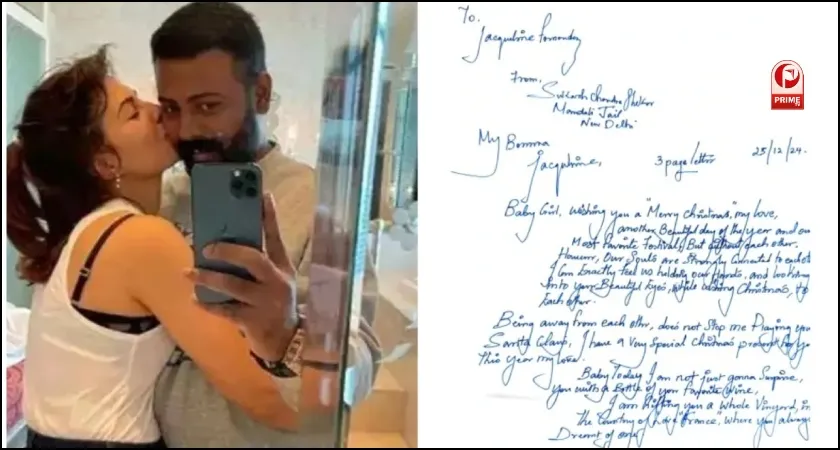 To,
Jacqueline Fernandez
From,
Sukash Chandra Shekar
Mandoli Jail
New Delhi
PRIME
My Bomma
Jacqueline, 3 page letter 25/12/24.
Baby Girl, wishing you a "Merry Christmas", my love,
another Beautiful day of the year and our
Most Favorite Festival, But without each other.
However, Our Souls are strongly Connected to each ot
I can Exactly feel us holding our Hands, and looking
Into your Beautiful Eyes, while wishing Christmas, to
Each other.
Being away from each other, does not stop me Playing your
Santa Claus, I have a Very Special Christmas present for yo
This year my love.
Baby Today I am not just gonna Surprise,
You with a Bottle of you favorite Wine,
I am Gifting you a Whole Vinyard, in
The Country of love "France", where you always
Dreamt of